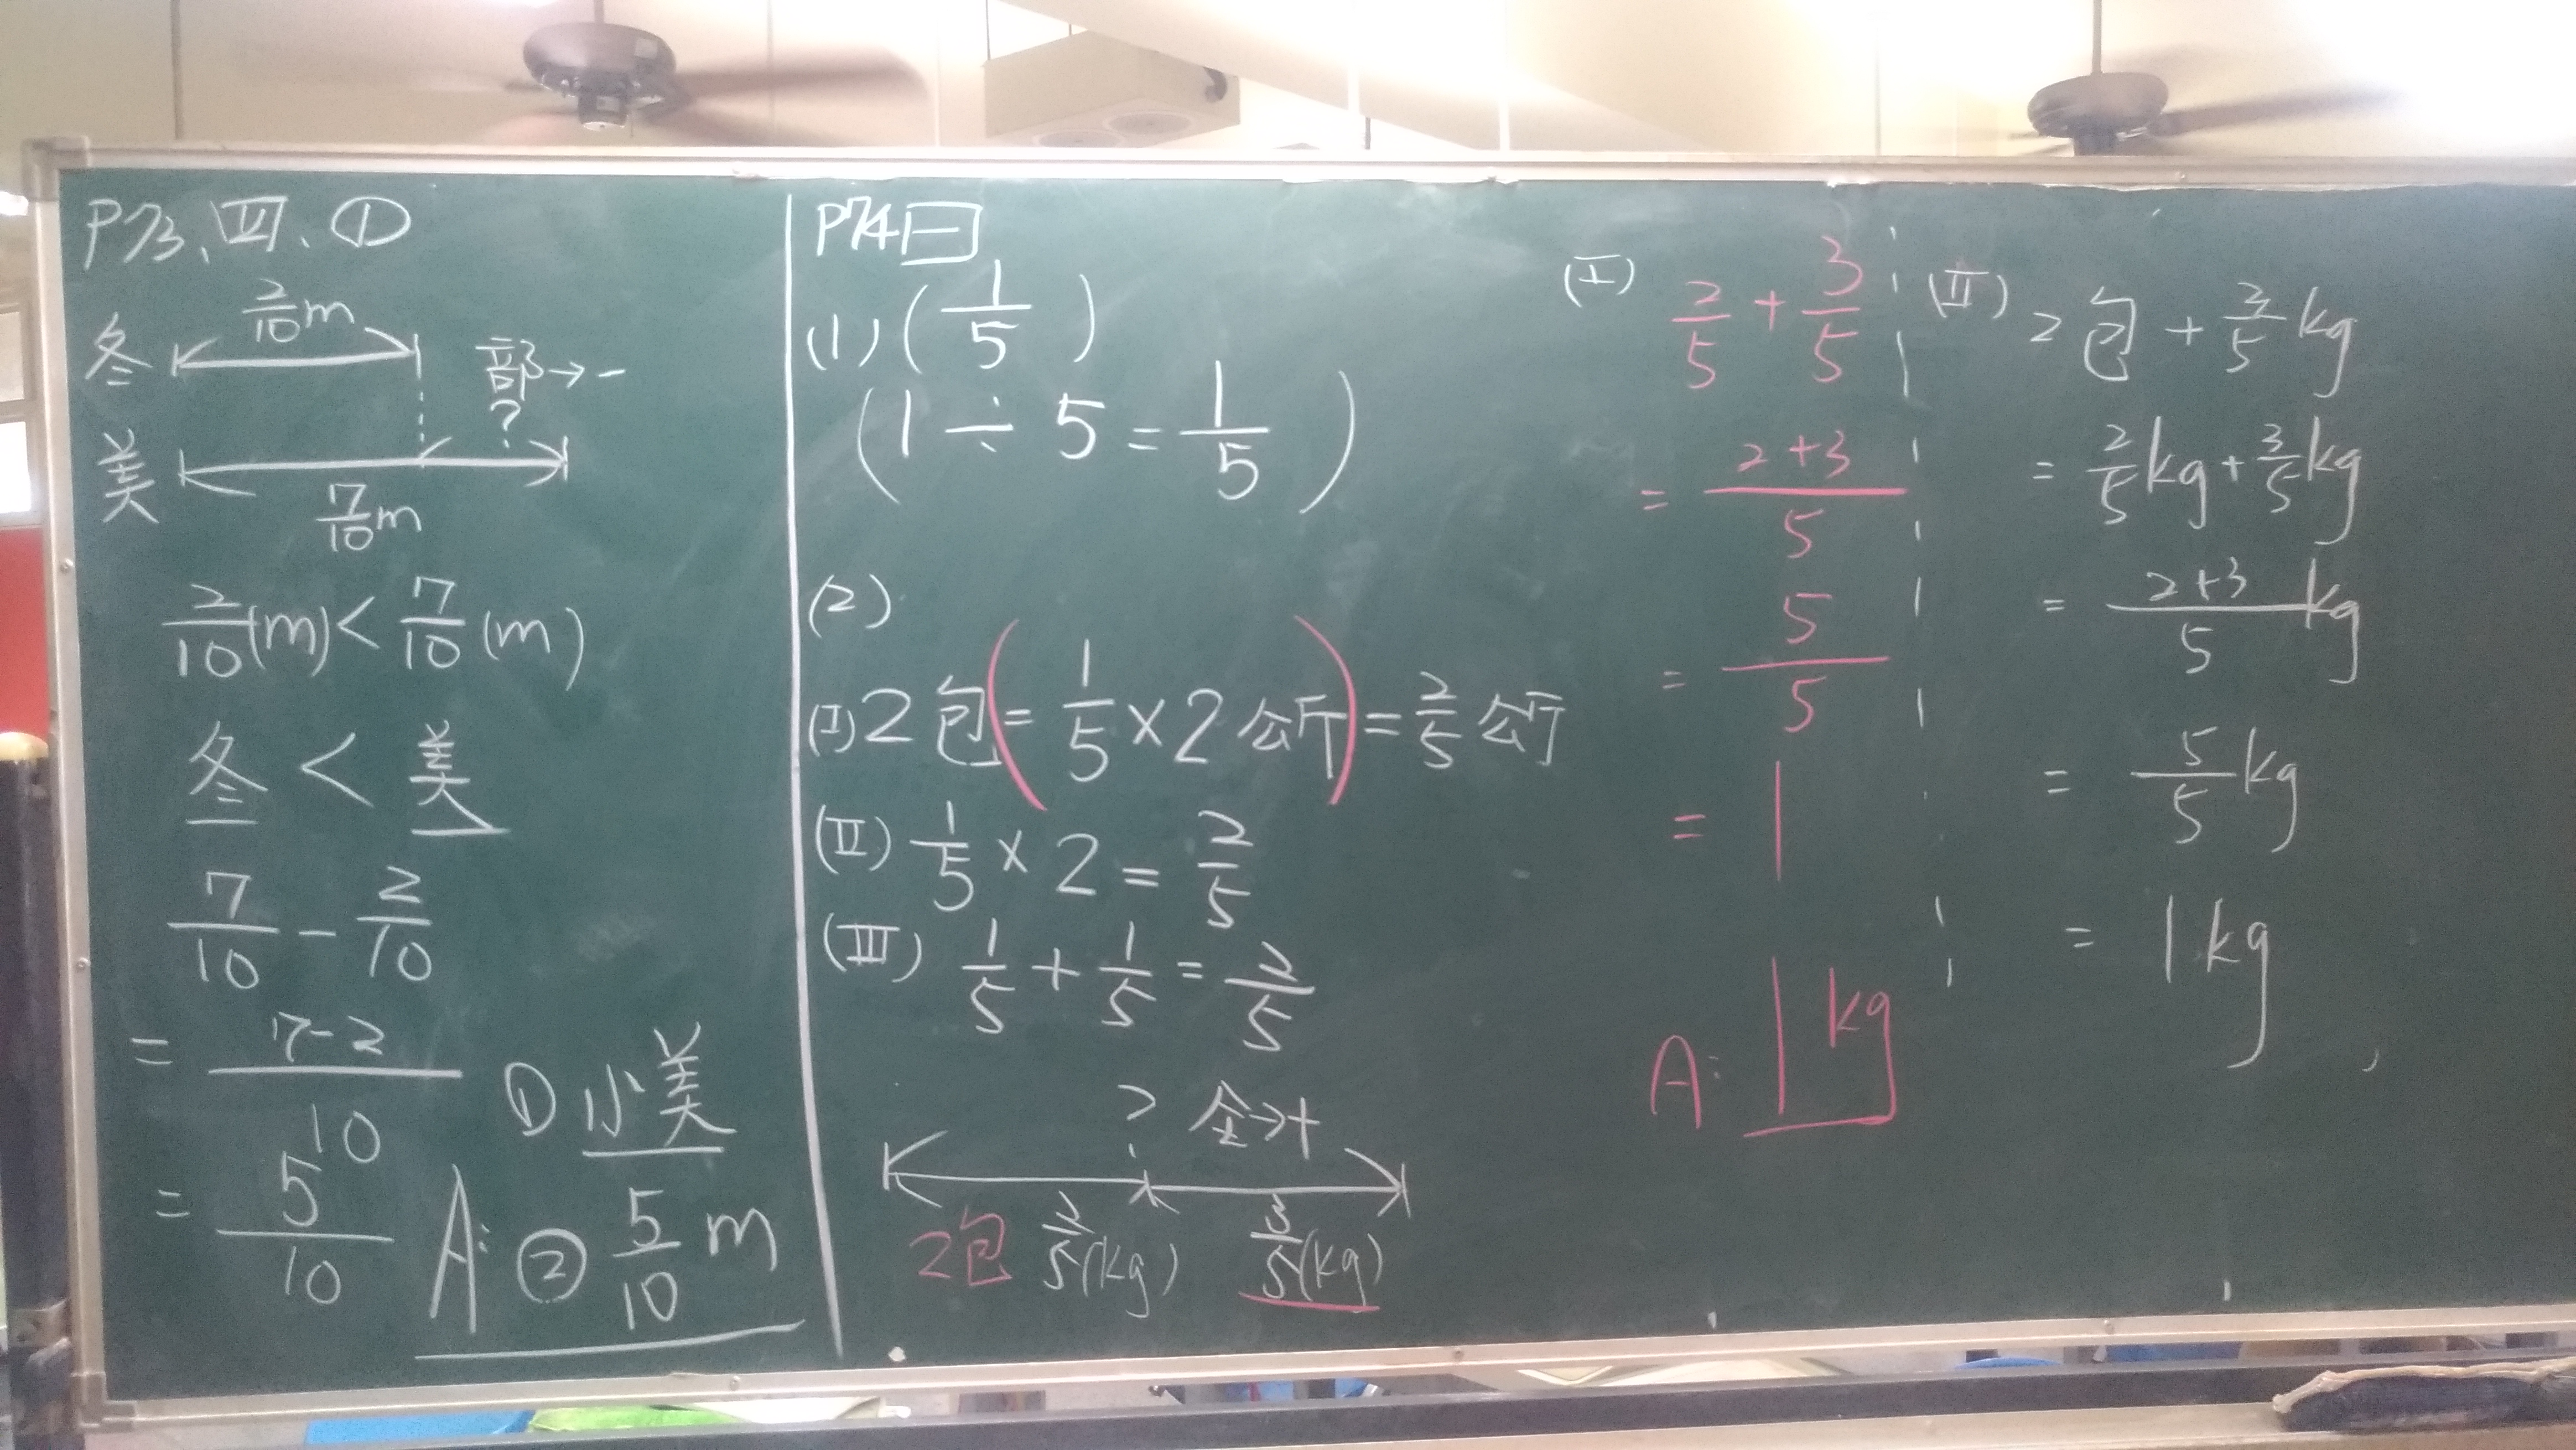 P73、四、①
2/10 m
冬
部→-
?
美
7/10 m
2/10 (m) < 7/10 (m)
冬 < 美
7/10 - 2/10
= 7-2/10
= 5/10
① 小美
A: ② 5/10 m
P74 一
(1) ( 1/5 )
( 1 ÷ 5 = 1/5 )
(2)
(I) 2包 ( = 1/5 × 2 公斤 ) = 2/5 公斤
(II) 1/5 × 2 = 2/5
(III) 1/5 + 1/5 = 2/5
? 全→+
2包 2/5 (kg) 3/5 (kg)
(I) 2/5 + 3/5
= 2+3/5
= 5/5
= 1
A: 1 kg
(II) 2包 + 3/5 kg
= 2/5 kg + 3/5 kg
= 2+3/5 kg
= 5/5 kg
= 1 kg